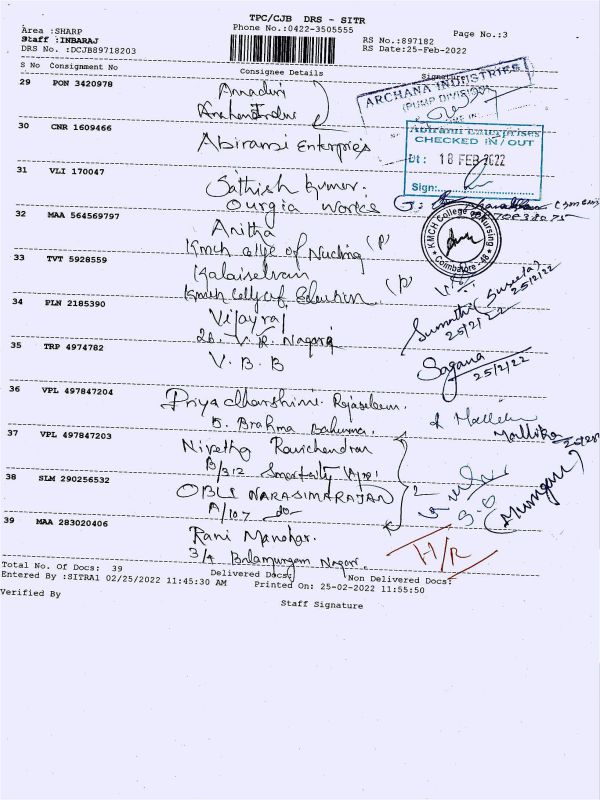 TPC/CJB DRS - SITR
Area :SHARP
Phone No.:0422-3505555
Page No.:3
Staff :INBARAJ
RS No.:897182
DRS No. :DCJB89718203
RS Date:25-Feb-2022
S No Consignment No
Consignee Details
Signature
29 PON 3420978
Annaduri
ARCHANA INDUSTRIES
(PUMP DIVISION)
30 CNR 1609466
Abirami Enterpries
Abirami Enterprises
CHECKED IN / OUT
Dt : 18 FEB 2022
Sign:
31 VLI 170047
Sathish Kumar.
Ourgia Works
32 MAA 564569797
Anitha
Kmch collge of Nucling (P)
KMCH College of Nursing
Coimbatore - 48
33 TVT 5928559
Kalaiselvam
Kmch collg of Education. (P)
34 PLN 2185390
Vijayraj
28. V. R. Nagar
Sumathi (Suseela)
25/2/22
25/2/22
35 TRP 4974782
V. B. B
Sagana
25/2/22
36 VPL 497847204
Priyadharshini. Rajaselem.
5. Brahma
Mallika
37 VPL 497847203
Nivetha Ravichendran
B/312 Smartcity
38 SLM 290256532
OBLI NARASIMARAJAN
A/107 -do-
(Murugan)
39 MAA 283020406
Rani Manohar.
3/4 Balamurugan Nagar.
H/R
Total No. Of Docs: 39
Delivered Docs:
Non Delivered Docs:
Entered By :SITRA1 02/25/2022 11:45:30 AM
Printed On: 25-02-2022 11:55:50
Verified By
Staff Signature